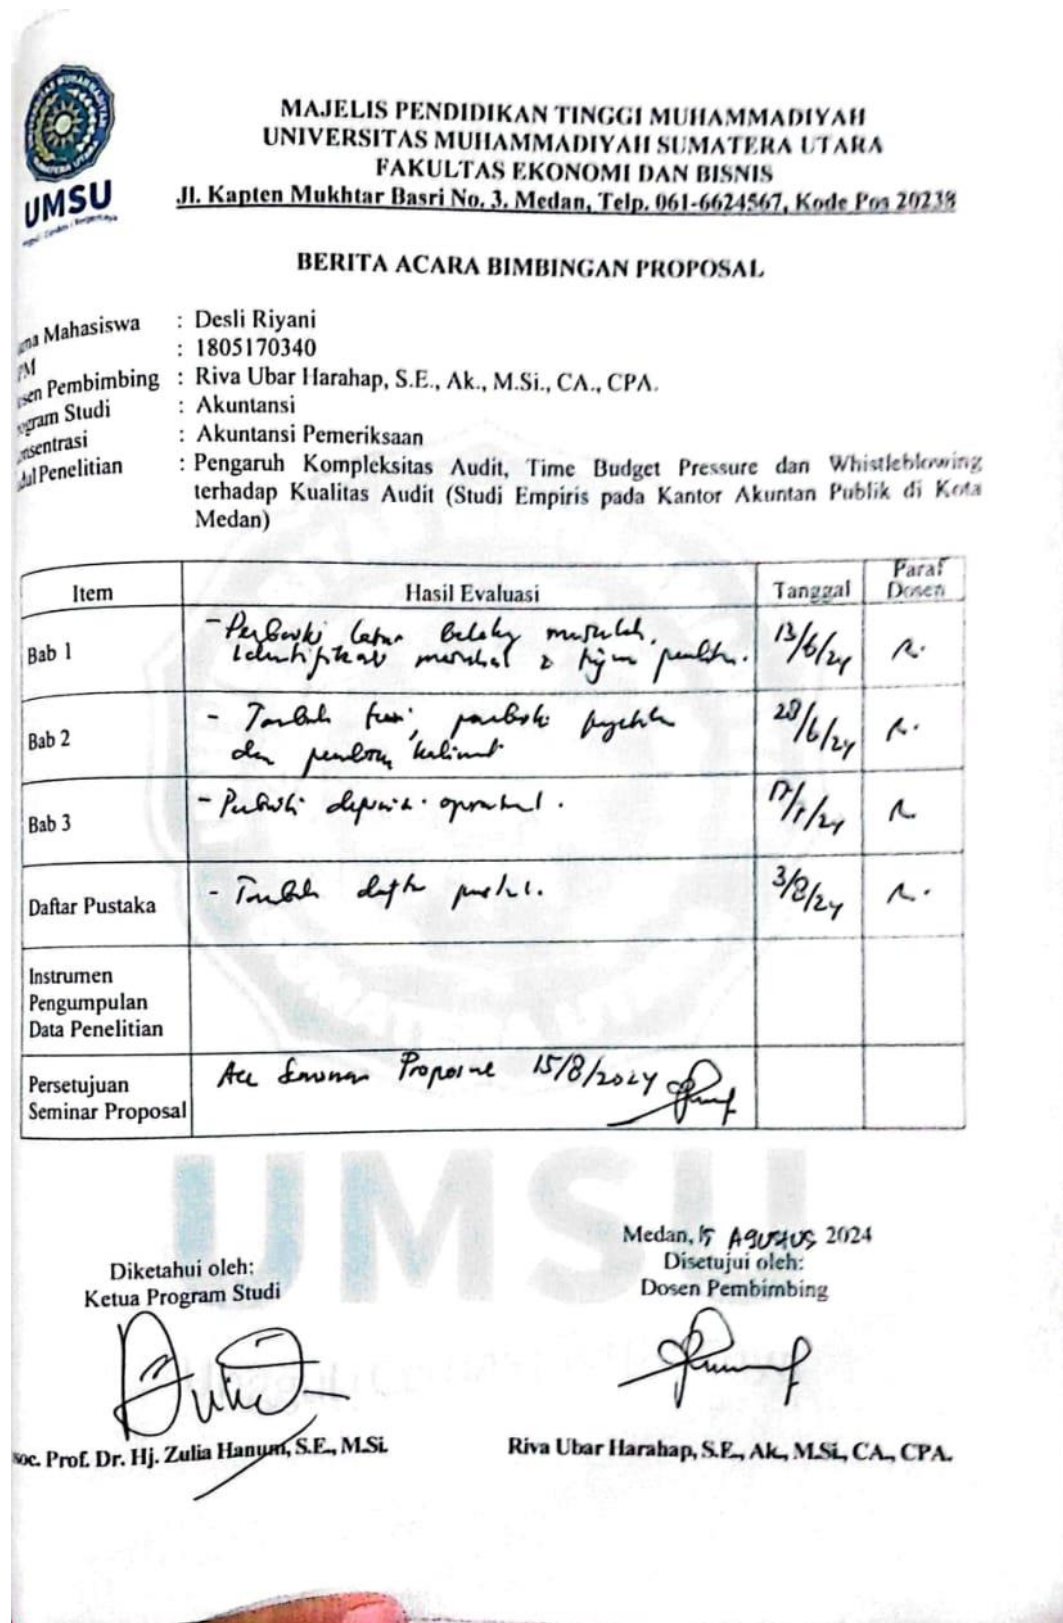 MAJELIS PENDIDIKAN TINGGI MUHAMMADIYAH
UNIVERSITAS MUHAMMADIYAH SUMATERA UTARA
FAKULTAS EKONOMI DAN BISNIS
Jl. Kapten Mukhtar Basri No. 3, Medan, Telp. 061-6624567, Kode Pos 20238
UMSU
BERITA ACARA BIMBINGAN PROPOSAL
Mahasiswa : Desli Riyani
: 1805170340
Pembimbing : Riva Ubar Harahap, S.E., Ak., M.Si., CA., CPA.
Studi : Akuntansi
: Akuntansi Pemeriksaan
Penelitian : Pengaruh Kompleksitas Audit, Time Budget Pressure dan Whistleblowing
terhadap Kualitas Audit (Studi Empiris pada Kantor Akuntan Publik di Kota
Medan)
Item Hasil Evaluasi Tanggal Paraf Dosen
Bab 1 - Perbaiki latar belakang masalah, 13/6/24
identifikasi masalah & tujuan penelitian.
Bab 2 - Tambah teori, 28/6/24
dan kalimat
Bab 3 - Perbaiki definisi operasional.
Daftar Pustaka - Tambah daftar pustaka. 3/8/24
Instrumen
Pengumpulan
Data Penelitian
Persetujuan
Seminar Proposal Acc Seminar Proposal 15/8/2024
UMSU
Medan, 15 Agustus 2024
Diketahui oleh: Disetujui oleh:
Ketua Program Studi Dosen Pembimbing
Prof. Dr. Hj. Zulia Hanum, S.E., M.Si. Riva Ubar Harahap, S.E., Ak., M.Si., CA., CPA.